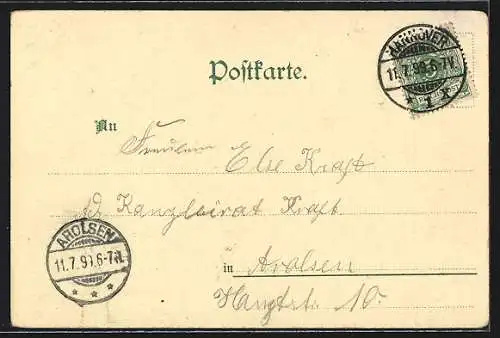 HANNOVER
11.7.99.6-7N.
* 1 *
Postkarte.
An
Fräulein Else Kraft
Kanzleirat Kraft
AROLSEN
11.7.99.6-7N.
* * *
in Arolsen
Hauptstr. 10.